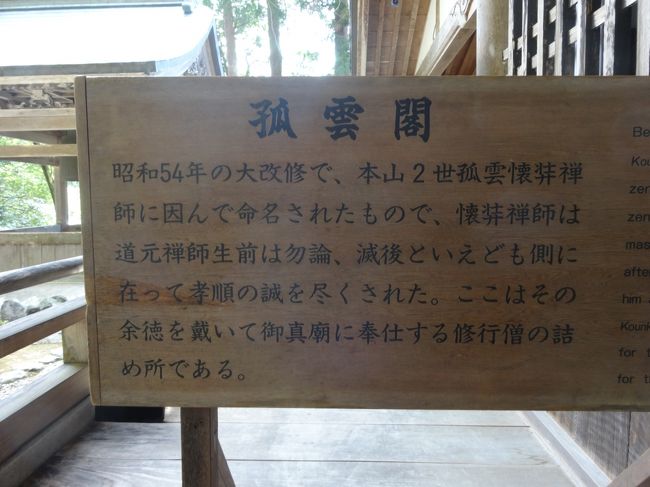 孤雲閣
昭和54年の大改修で、本山2世孤雲懐弉禅
師に因んで命名されたもので、懐弉禅師は
道元禅師生前は勿論、滅後といえども側に
在って孝順の誠を尽くされた。ここはその
余徳を戴いて御真廟に奉仕する修行僧の詰
め所である。
Be
Kou
zen
zen
mas
after
him
Koun
for t
for t